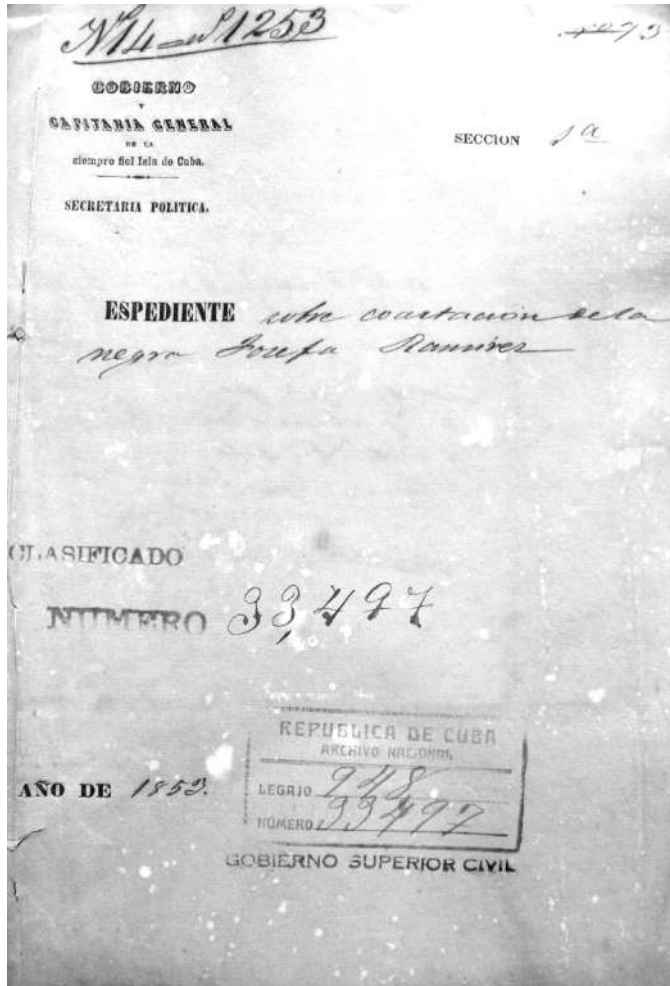 Nº 14 = nº 1253
GOBIERNO
Y
CAPITANIA GENERAL
DE LA
siempre fiel Isla de Cuba.
SECRETARIA POLITICA.
SECCION 1ª
ESPEDIENTE sobre coartacion de la
negra Josefa Ramirez
CLASIFICADO
NUMERO 33,497
REPUBLICA DE CUBA
ARCHIVO NACIONAL
LEGAJO 948
NÚMERO 33497
AÑO DE 1853.
GOBIERNO SUPERIOR CIVIL